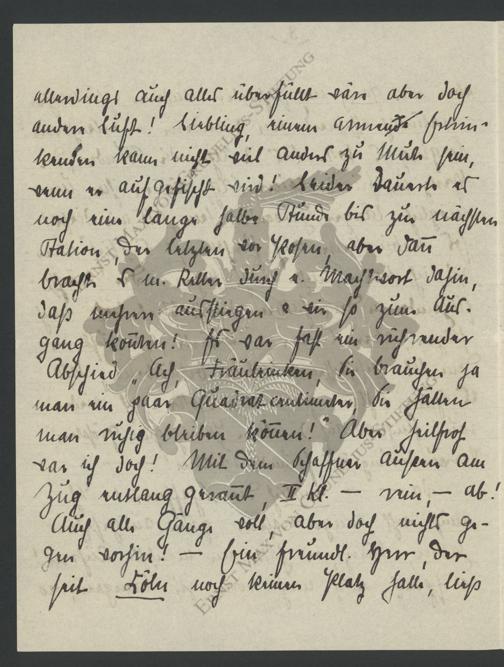 allerdings auch alles überfüllt wäre aber doch
andere Luft! Liebling, einem armen Ertrin-
kenden kann nicht viel anders zu Mute sein,
wenn er aufgefischt wird! Leider dauerte es
noch eine lange halbe Stunde bis zur nächsten
Station, der letzten vor Posen, aber dann
brachte es m. Retter durch e. Machtwort dahin,
daß mehrere ausstiegen u wir so zum Aus-
gang konnten! Es war fast ein rührender
Abschied „Ach, Fräuleinken, Sie brauchen ja
man ein paar Quadratcentimeter, Sie hätten
man ruhig bleiben können! Aber heilfroh
war ich doch! Mit dem Schaffner außen am
Zug entlang gerannt, II Kl. — rein, — ab!
Auch alle Gänge voll, aber doch nichts ge-
gen vorhin! — Ein freundl. Herr, der
seit Cöln noch keinen Platz hatte, ließ
ERNST MAX VON GRUNELIUS-STIFTUNG
ERNST MAX VON GRUNELIUS-STIFTUNG